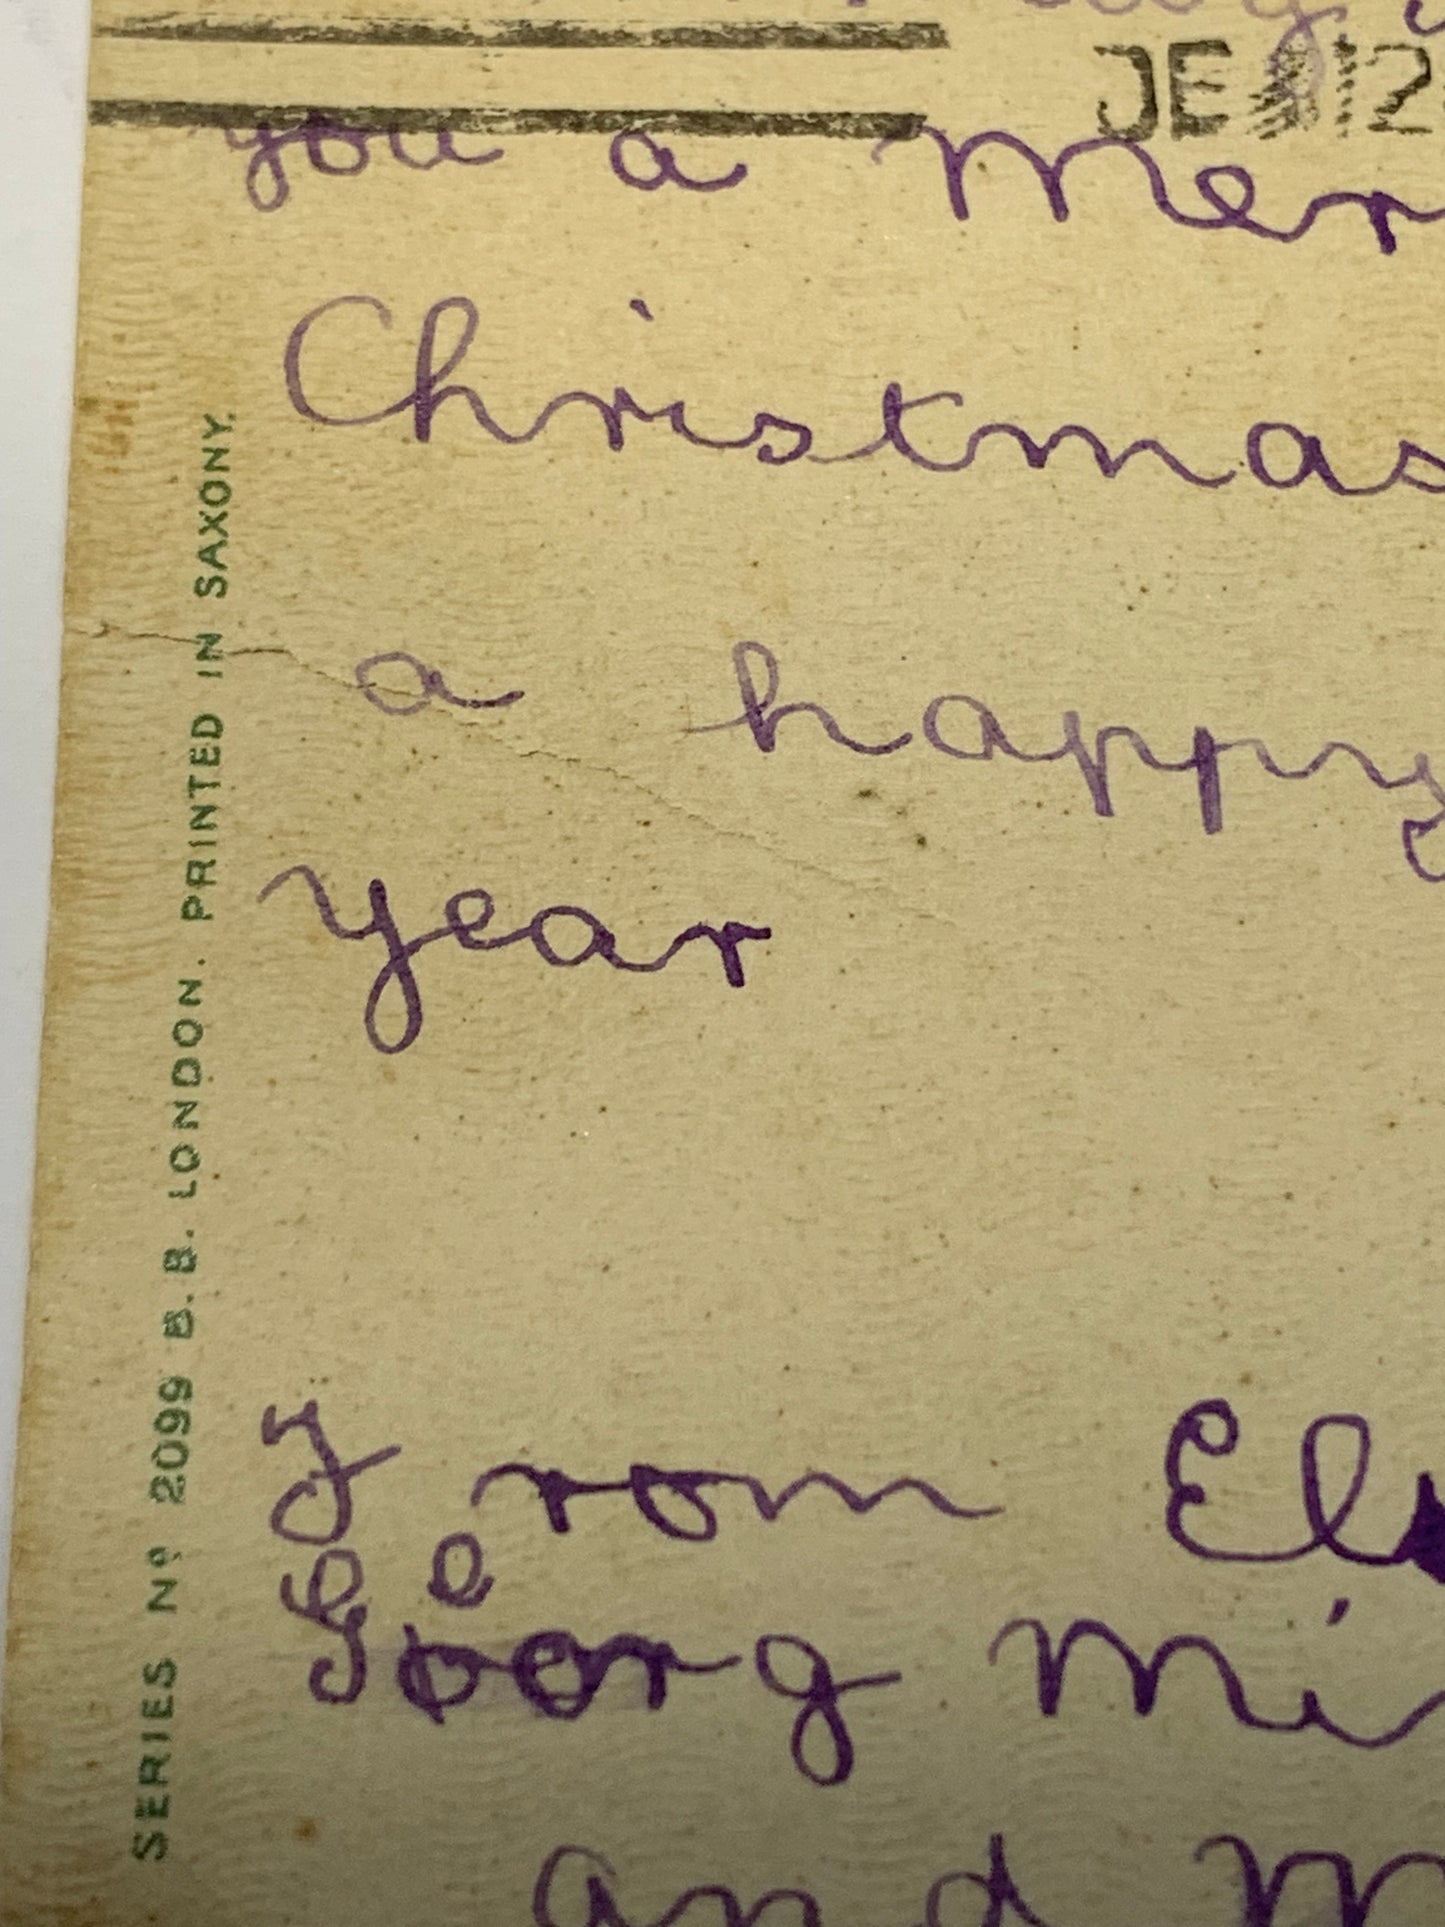 you a Mer
Christmas
a happy
year
From El
Georg Mi
and M
SERIES Nº 2099 B.B. LONDON. PRINTED IN SAXONY.